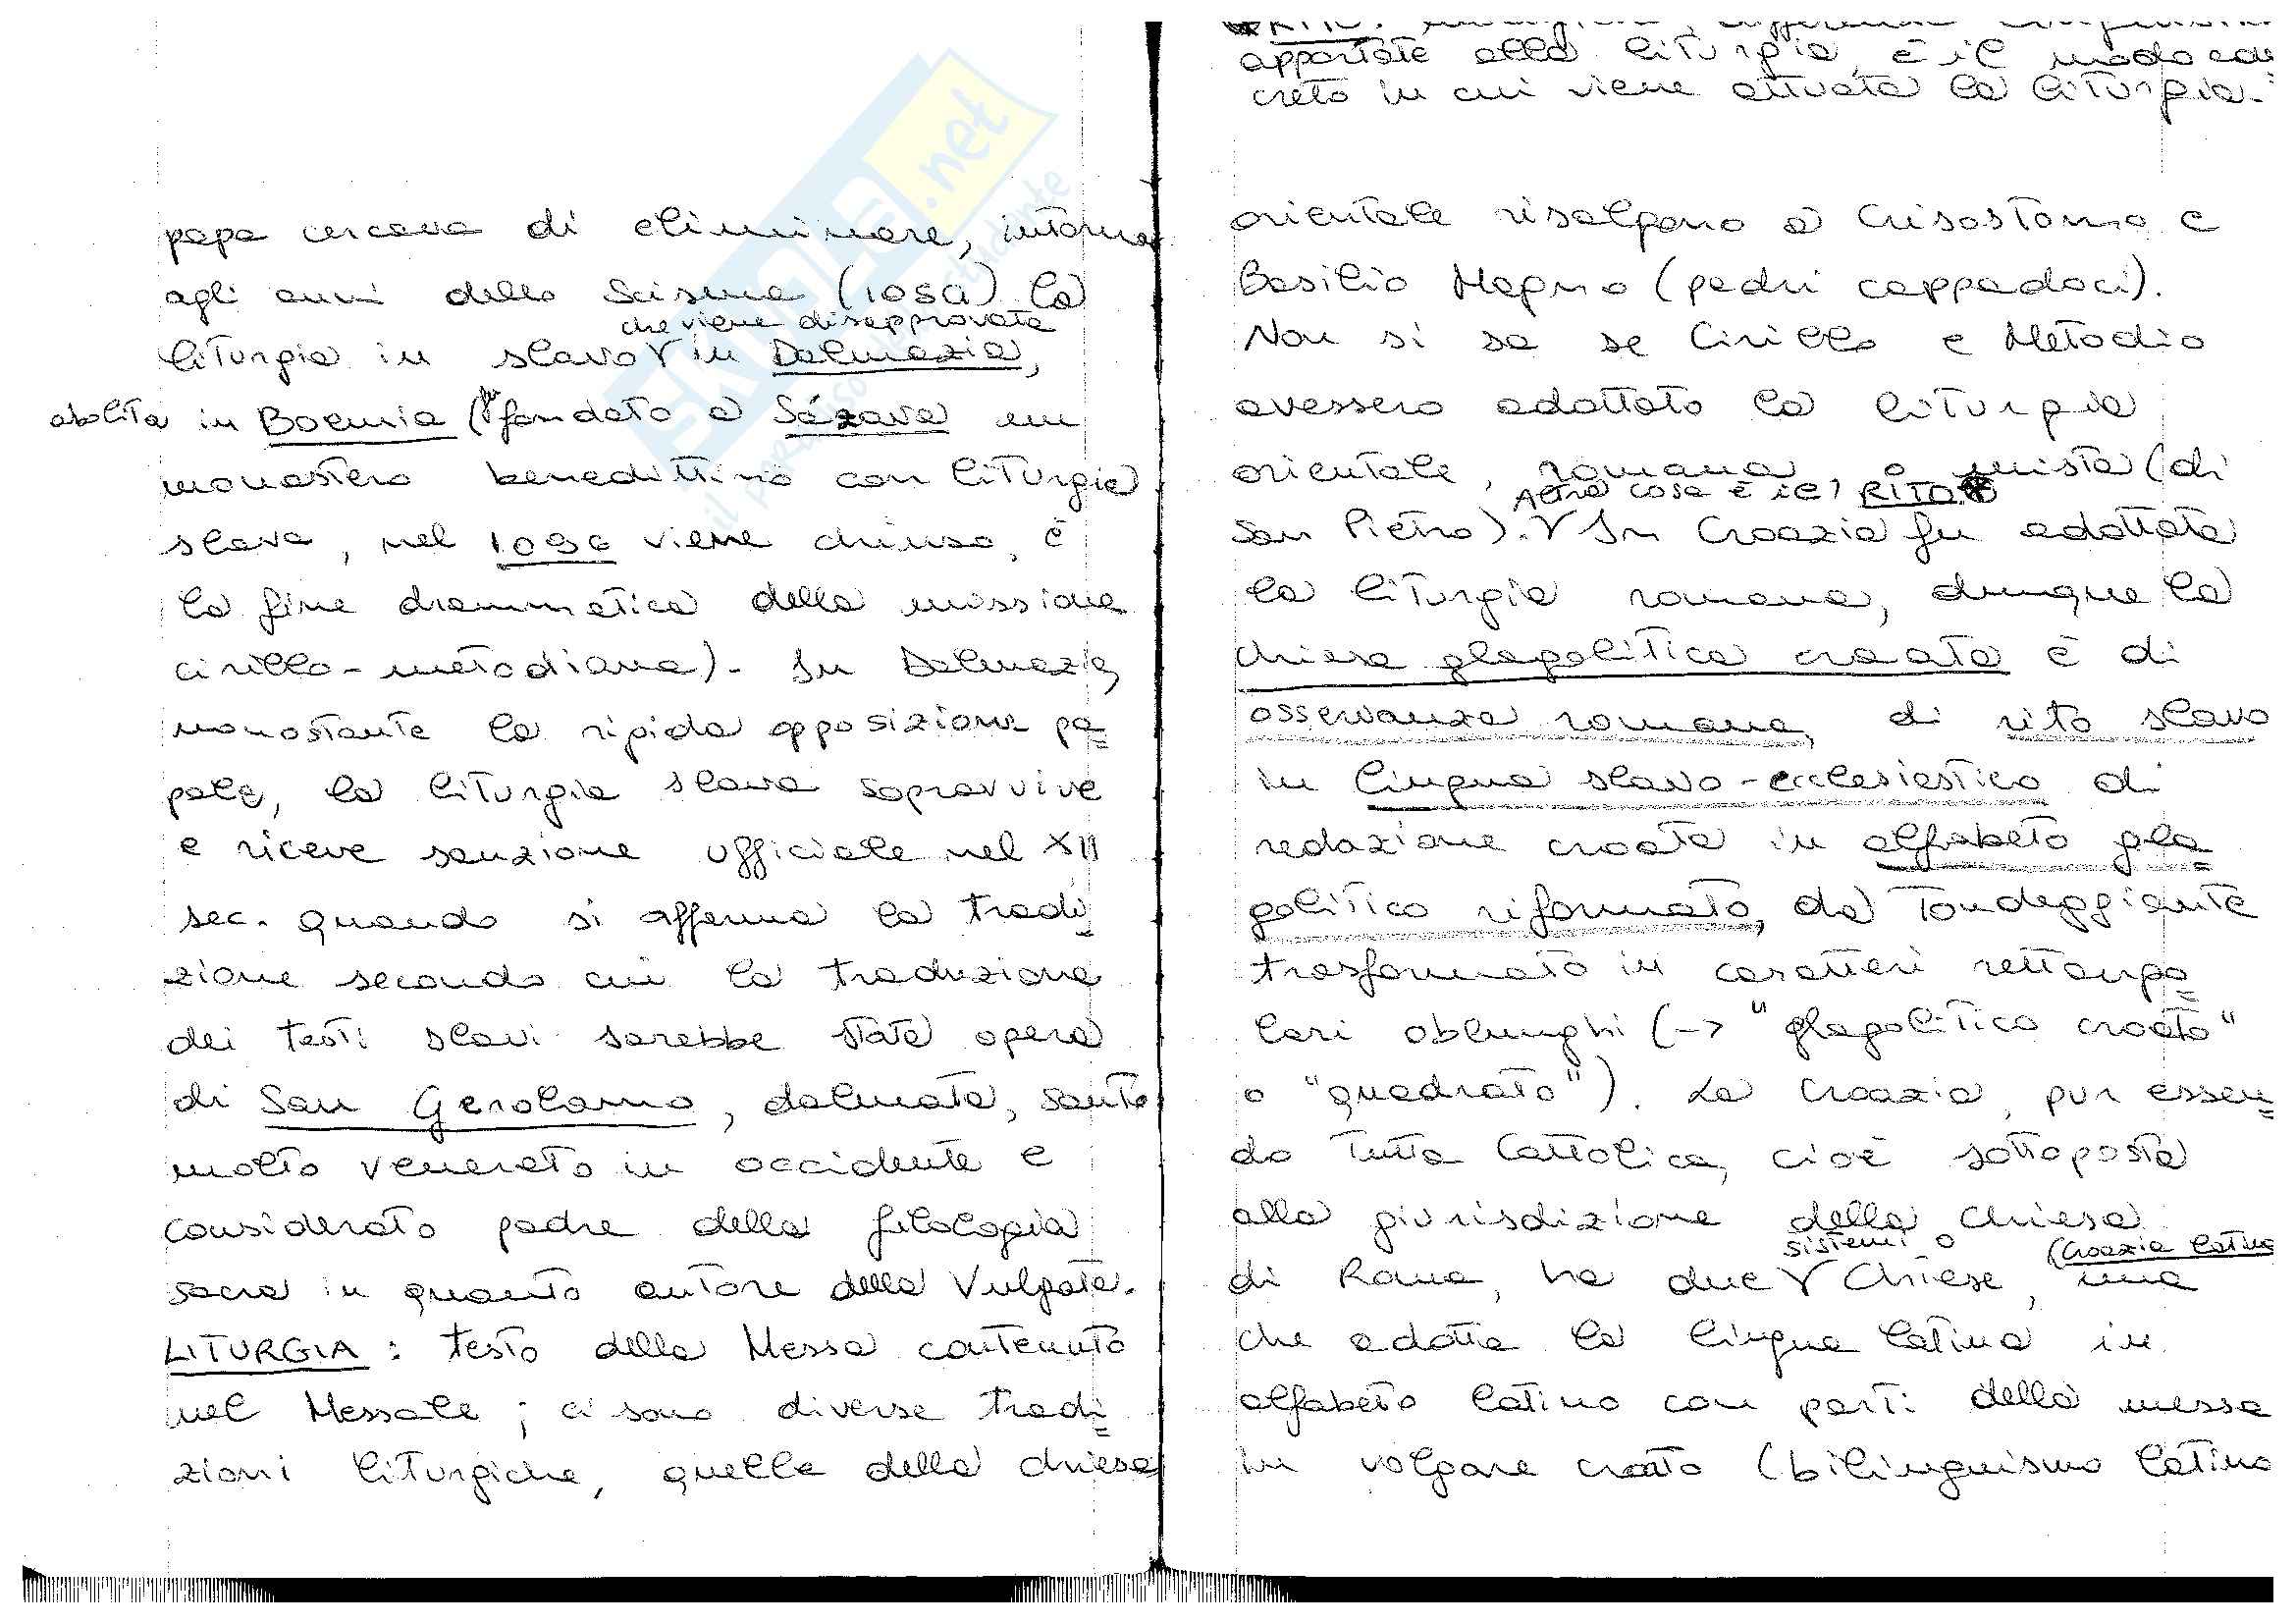 papa cercava di eliminare, intorno
agli anni dello Scisma (1054) la
che viene disapprovata
liturgia in slavo in Dalmazia,
abolita in Boemia (fondato a Sázava un
monastero benedittino con liturgia
slava, nel 1096 viene chiuso, è
la fine drammatica della missione
cirillo-metodiana). In Dalmazia,
nonostante la rigida opposizione pa=
pale, la liturgia slava sopravvive
e riceve sanzione ufficiale nel XII
sec. quando si afferma la tradi=
zione secondo cui la traduzione
dei testi slavi sarebbe stata opera
di San Gerolamo, dalmata, santo
molto venerato in occidente e
considerato padre della filologia
sacra in quanto autore della Vulgata.
LITURGIA: testo della Messa contenuto
nel Messale; ci sono diverse tradi=
zioni liturgiche, quella della chiesa
RITO:
apportate alla liturgia, è il modo con
creto in cui viene attuata la liturgia.
orientale risalgono a Crisostomo e
Basilio Magno (padri cappadoci).
Non si sa se Cirillo e Metodio
avessero adottato la liturgia
orientale, romana o mista (di
Altra cosa è il RITO
San Pietro). In Croazia fu adottata
la liturgia romana, dunque la
chiesa glagolitica croata è di
osservanza romana, di rito slavo
in lingua slavo-ecclesiastico di
redazione croata in alfabeto gla=
golitico riformato, da tondeggiante
trasformato in caratteri rettango=
lari oblunghi (-> "glagolitico croato"
o "quadrato"). La Croazia, pur essen=
do tutta Cattolica, cioè sottoposta
alla giurisdizione della Chiesa
sistemi o (Croazia latina
di Roma, ha due Chiese, una
che adotta la lingua latina in
alfabeto latino con parti della messa
in volgare croato (bilinguismo latino
SKUOLA.net
il paradiso dello studente